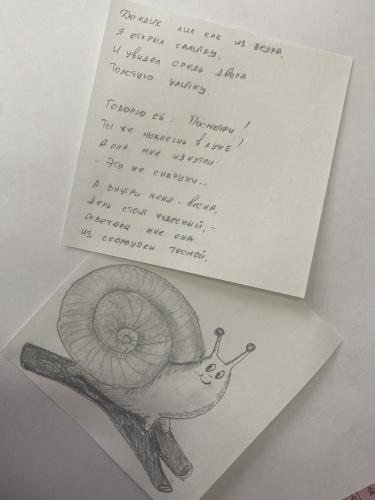 Дождик лил как из ведра,
Я открыл калитку,
И увидел средь двора
Толстую улитку.
Говорю ей: Посмотри!
Ты же мокнешь в луже!
А она мне изнутри:
- Это же снаружи...
А внутри меня - весна,
День стоит чудесный, -
Отвечала мне она
Из скорлупки тесной.